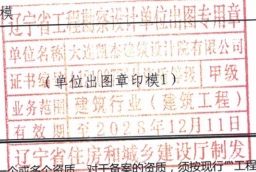 模
辽宁省工程勘察设计单位出图专用章
单位名称 大连凯杰建筑设计院有限公司
证书编 甲级
(单位出图章印模1)
业务范围 建筑行业(建筑工程)
有效期 至2028年12月11日
辽宁省住房和城乡建设厅制发
一个或多个资质。对于备案的资质，须按现行“工程